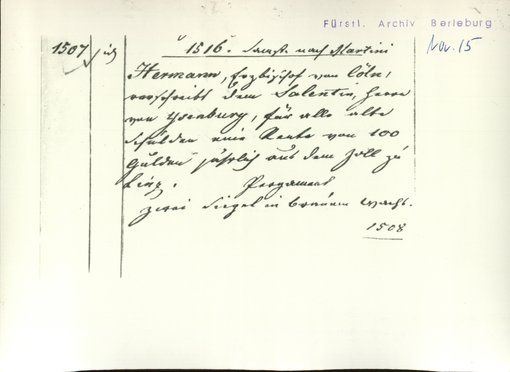 Fürstl. Archiv Berleburg
Nov. 15
1507
1516. Samst. nach Martini
Hermann, Erzbischof von Cöln,
verschreibt dem Salentin, Herrn
von Ysenburg, für alle alte
Schulden eine Rente von 100
Gulden jährlich aus dem Zoll zu
Linz. Pergament
zwei Siegel in braunem Wachs.
1508